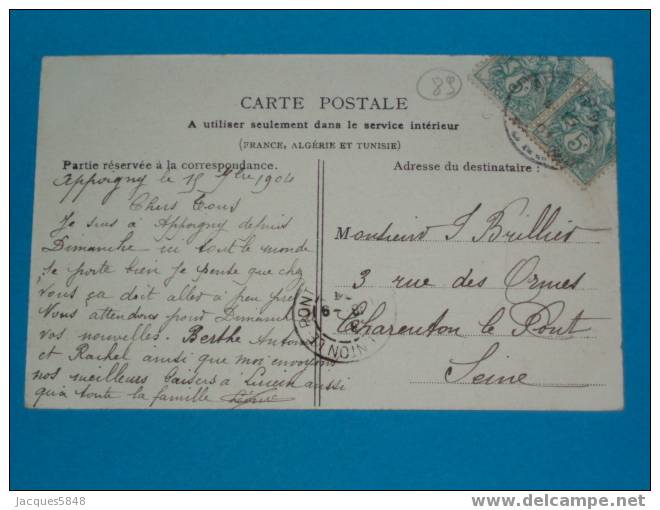 89
CARTE POSTALE
A utiliser seulement dans le service intérieur
(FRANCE, ALGÉRIE ET TUNISIE)
Partie réservée à la correspondance.
Adresse du destinataire :
Appoigny le 15 9bre 1904
Chers Tous
Je suis à Appoigny depuis
Dimanche ici tout le monde
se porte bien je pense que chez
vous ça doit aller à peu près
Nous attendons pour Dimanche
vos nouvelles. Berthe Antoine
et Rachel ainsi que moi envoyons
nos meilleurs baisers à Lucien aussi
qu'à toute la famille
Monsieur J Brillié
3 rue des Ormes
Charenton le Pont
Seine
5
5
PONT
Jacques5848
www.delcampe.net